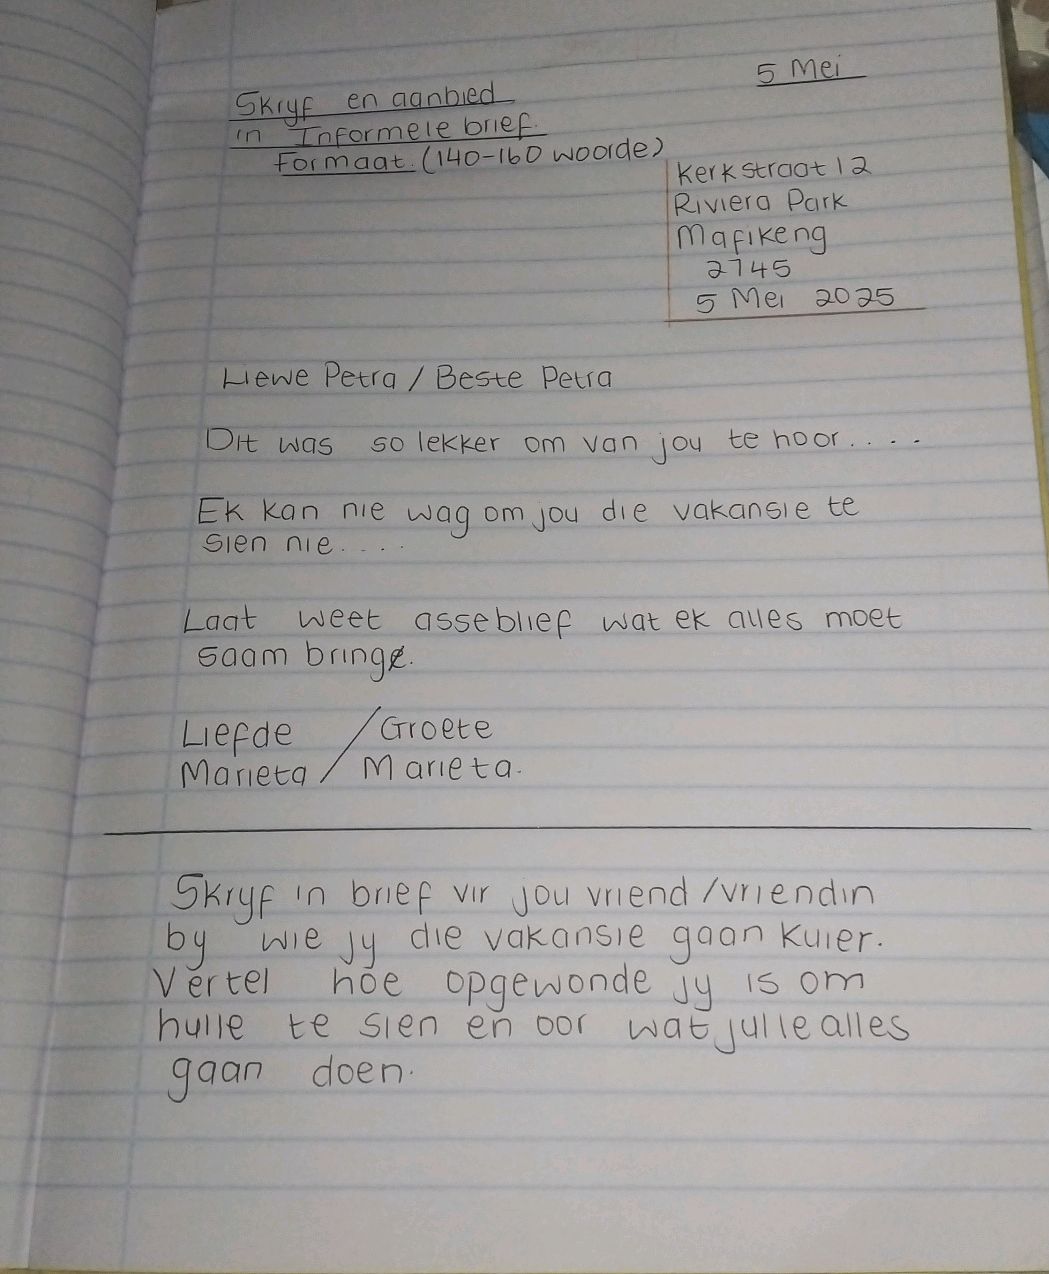 5 Mei
Skryf en aanbied
in Informele brief.
Formaat. (140-160 woorde)
Kerkstraat 12
Riviera Park
Mafikeng
2745
5 Mei 2025
Liewe Petra / Beste Petra
Dit was so lekker om van jou te hoor....
Ek kan nie wag om jou die vakansie te
sien nie....
Laat weet asseblief wat ek alles moet
saam bring.
Liefde / Groete
Marieta / Marieta.
Skryf in brief vir jou vriend /vriendin
by wie jy die vakansie gaan kuier.
Vertel hoe opgewonde jy is om
hulle te sien en oor wat julle alles
gaan doen.